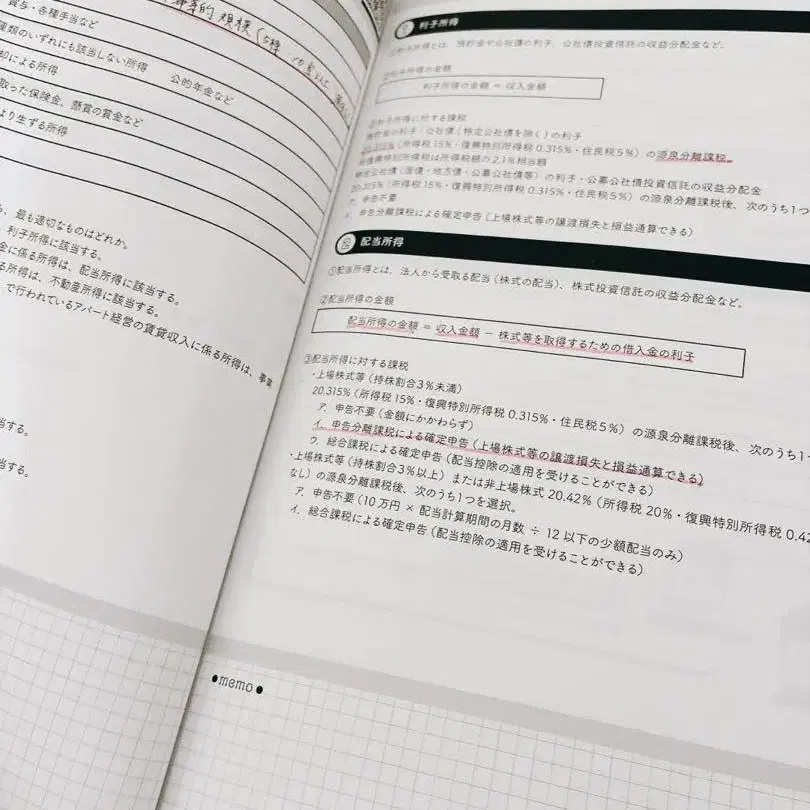 規模(5棟
賞与・各種手当など
種類のいずれにも該当しない所得 公的年金など
による所得
取った保険金、懸賞の賞金など
より生ずる所得
、最も適切なものはどれか。
利子所得に該当する。
金に係る所得は、配当所得に該当する。
る所得は、不動産所得に該当する。
で行われているアパート経営の賃貸収入に係る所得は、事業
当する。
当する。
利子所得
①利子所得とは、預貯金や公社債の利子、公社債投資信託の収益分配金など。
②利子所得の金額
利子所得の金額 = 収入金額
③利子所得に対する課税
預貯金の利子・公社債(特定公社債を除く)の利子
20.315%(所得税15%・復興特別所得税0.315%・住民税5%)の源泉分離課税。
復興特別所得税は所得税額の2.1%相当額
特定公社債(国債・地方債・公募公社債等)の利子・公募公社債投資信託の収益分配金
20.315%(所得税15%・復興特別所得税0.315%・住民税5%)の源泉分離課税後、次のうち1つ
ア. 申告不要
イ. 申告分離課税による確定申告(上場株式等の譲渡損失と損益通算できる)
配当所得
①配当所得とは、法人から受取る配当(株式の配当)、株式投資信託の収益分配金など。
②配当所得の金額
配当所得の金額 = 収入金額 − 株式等を取得するための借入金の利子
③配当所得に対する課税
・上場株式等(持株割合3%未満)
20.315%(所得税15%・復興特別所得税0.315%・住民税5%)の源泉分離課税後、次のうち1
ア. 申告不要(金額にかかわらず)
イ. 申告分離課税による確定申告(上場株式等の譲渡損失と損益通算できる)
ウ. 総合課税による確定申告(配当控除の適用を受けることができる)
・上場株式等(持株割合3%以上)または非上場株式20.42%(所得税20%・復興特別所得税0.42
なし)の源泉分離課税後、次のうち1つを選択。
ア. 申告不要(10万円 × 配当計算期間の月数 ÷ 12以下の少額配当のみ)
イ. 総合課税による確定申告(配当控除の適用を受けることができる)
●memo●